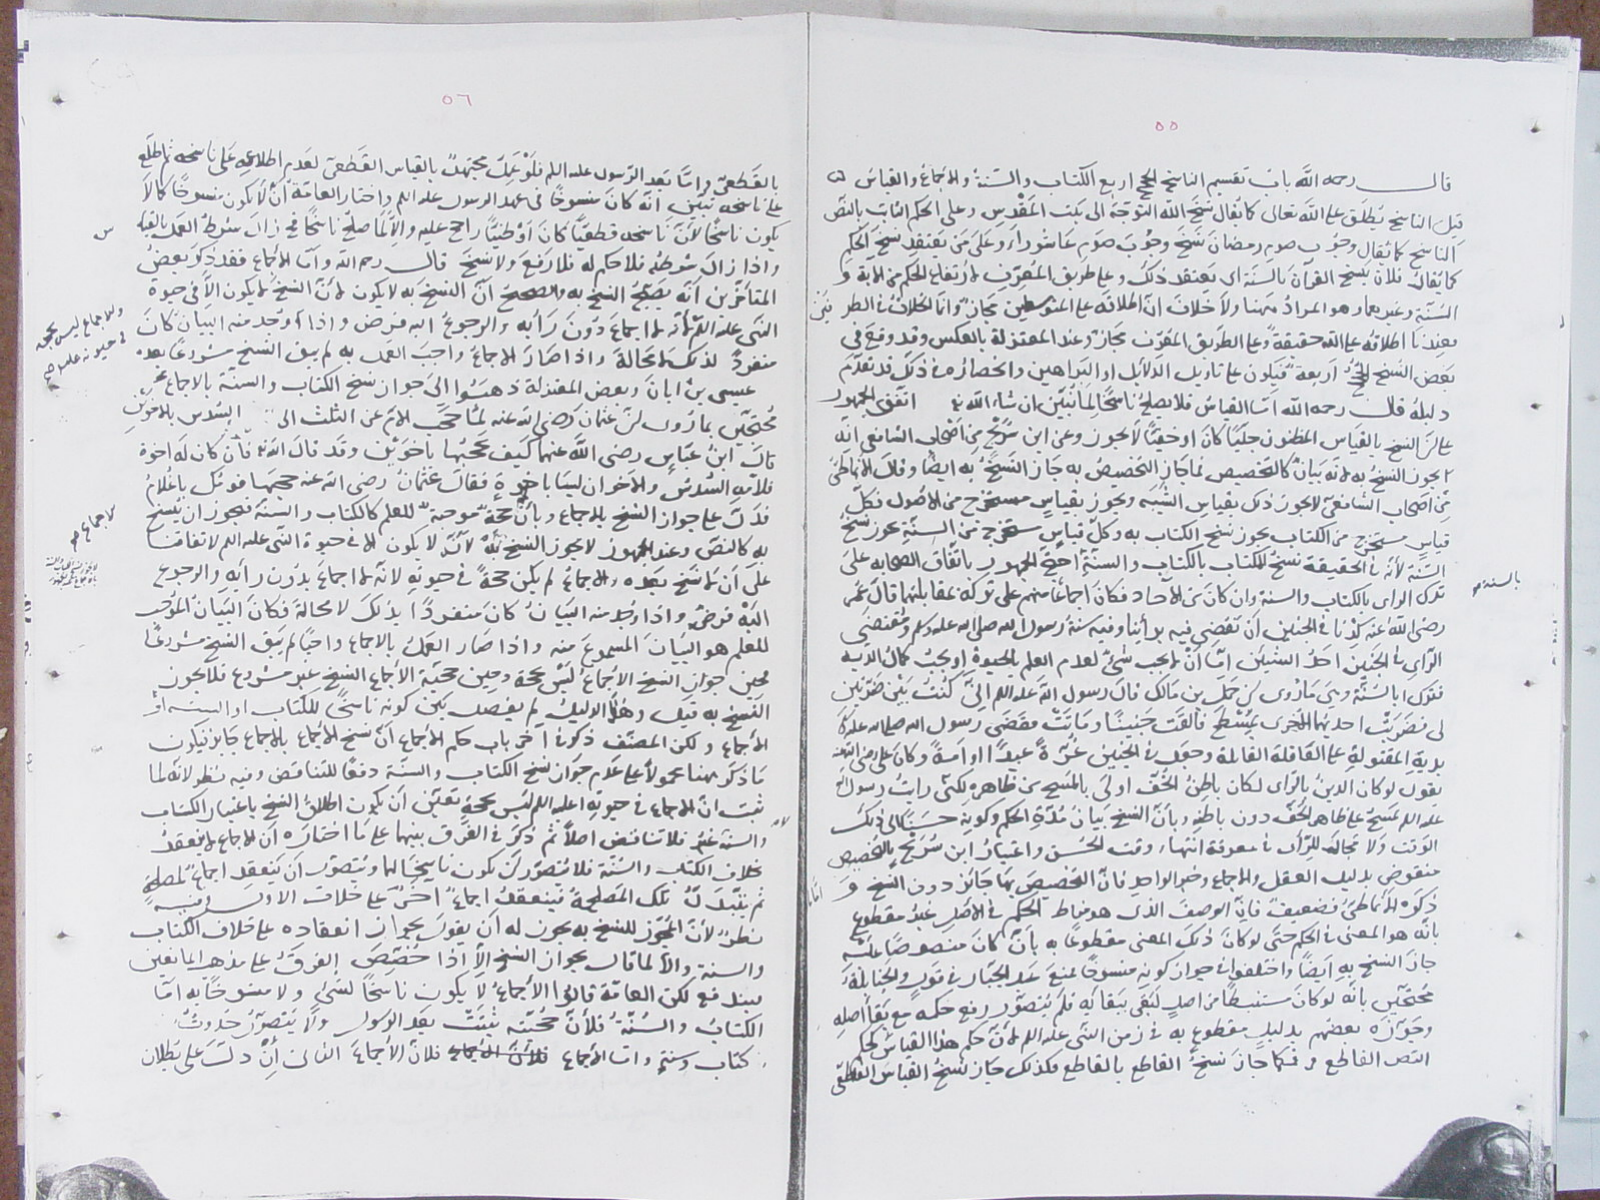 ٥٥
قال رحمه الله باب تقسيم الناسخ الحجج اربع الكتاب والسنة والاجماع والقياس
قيل الناسخ يطلق على الله تعالى كما يقال نسخ الله التوجه الى بيت المقدس وعلى الحكم الثابت بالنص
الناسخ كما يقال وجوب صوم رمضان نسخ وجوب صوم عاشوراء وعلى من يعتقد نسخ الحكم
كما يقال فلان ينسخ القرآن بالسنة اى يعتقد ذلك وعلى طريق المعرف لارتفاع الحكم من الآية و
السنة وغيرهما وهو المراد ههنا ولا خلاف ان اطلاقه على المتوسطين مجاز وانما الخلاف فى الطرفين
فعندنا اطلاقه على الله حقيقة وعلى الطريق المعرف مجاز وعند المعتزلة بالعكس وقد وقع فى
بعض النسخ الحجج اربعة فيكون على تاويل الدلائل او البراهين وانحصاره فى ذلك قد تقدم
دليله قال رحمه الله اما القياس فلا يصلح ناسخا لما نبين ان شاء الله اتفق الجمهور
على ان النسخ بالقياس المظنون جليا كان او خفيا لا يجوز وعن ابن سريج من اصحاب الشافعى انه
يجوز النسخ به لانه بيان كالتخصيص فما جاز التخصيص به جاز النسخ به ايضا وقال الانماطى
من اصحاب الشافعى لا يجوز ذلك بقياس الشبه ويجوز بقياس مستخرج من الاصول فكل
قياس مستخرج من الكتاب يجوز نسخ الكتاب به وكل قياس مستخرج من السنة يجوز نسخ
السنة لانه فى الحقيقة نسخ الكتاب بالكتاب والسنة احتج الجمهور باتفاق الصحابة على
بالسنة صح
ترك الراى بالكتاب والسنة وان كان من الآحاد فكان اجماعا منهم على تركه بمقابلتهما قال عمر
رضى الله عنه كدنا فى الجنين ان نقضى فيه برأينا وفيه سنة رسول الله صلى الله عليه وسلم ومقتضى
الراى فى الجنين احد الشيئين اما ان لا يجب شئ لعدم العلم بالحيوة او يجب كمال الدية
فترك بالسنة وهى ما روى عن حمل بن مالك قال رسول الله عليه السلام انى كنت بين ضرتين
لى فضربت احديهما الاخرى بمسطح فالقت جنينا وماتت فقضى رسول الله صلى الله عليه
بدية المقتولة على العاقلة القاتلة وجعل فى الجنين غرة عبدا او امة وكان على رضى الله عنه
يقول لو كان الدين بالراى لكان باطن الخف اولى بالمسح من ظاهره لكنى رأيت رسول الله
عليه السلام يمسح على ظاهر الخف دون باطنه وبان النسخ بيان مدة الحكم وكونه حسنا الى ذلك
الوقت ولا مجال للراى فى معرفة انتهاء وقت الحسن واعتبار ابن سريج بالتخصيص
منقوض بدليل العقل والاجماع وخبر الواحد فان التخصيص بها جائز دون النسخ و
ذكره الانماطى فضعيف فان الوصف الذى هو مناط الحكم فى الاصل غير مقطوع
بانه هو المعنى فى الحكم حتى لو كان ذلك المعنى مقطوعا به بان كان منصوصا عليه
جاز النسخ به ايضا واختلفوا فى جواز كونه منسوخا فمنع عبد الجبار فى قول والحنابلة
محتجين بانه لو كان مستنبطا من اصل لبقى ببقائه فلم يتصور رفع حكمه مع بقاء اصله
وجوزه بعضهم بدليل مقطوع به فى زمن النبى عليه السلام لان حكم هذا القياس كحكم
النص القاطع فكما جاز نسخ القاطع بالقاطع فكذلك جاز نسخ القياس القطعى
٥٦
بالقطعى واما بعد الرسول عليه السلام فلو عمل مجتهد بالقياس القطعى لعدم اطلاعه على ناسخه ثم اطلع
على ناسخه تبين انه كان منسوخا فى عهد الرسول عليه السلام واختار العامة ان لا يكون منسوخا كما لا
يكون ناسخا لان ناسخه قطعيا كان او ظنيا راجح عليه والا لما صلح ناسخا فح زال شرط العمل بالقياس
واذا زال شرطه فلا حكم له فلا رفع ولا نسخ قال رحمه الله واما الاجماع فقد ذكر بعض
المتأخرين انه يصح النسخ به والصحيح ان النسخ به لا يكون لان النسخ لا يكون الا فى حيوة
النبى عليه السلام لا اجماع دون رأيه والرجوع اليه فرض واذا وجد منه البيان كان
ولا اجماع ليس بحجة
فى حيوته عليه السلام صح
منفردا لذلك لا محالة واذا صار الاجماع واجب العمل به لم يبق النسخ مشروعا بعده
عيسى بن ابان وبعض المعتزلة ذهبوا الى جواز نسخ الكتاب والسنة بالاجماع
محتجين بما روى ان عثمان رضى الله عنه لما حجب الام عن الثلث الى السدس بالاخوين
قال ابن عباس رضى الله عنهما كيف تحجبها باخوين وقد قال الله تعالى فان كان له اخوة
فلامه السدس والاخوان ليسا باخوة فقال عثمان رضى الله عنه حجبها قومك يا غلام
فدل على جواز النسخ بالاجماع وبانه حجة موجبة للعلم كالكتاب والسنة فيجوز ان ينسخ
به كالنص وعند الجمهور لا يجوز النسخ به لانه لا يكون الا فى حيوة النبى عليه السلام لاتفاقنا
على ان لا نسخ بعده والاجماع لم يكن حجة فى حيوته لانه لا اجماع بدون رأيه والرجوع
اليه فرض واذا وجد منه البيان كان منفردا بذلك لا محالة فكان البيان الموجب
للعلم هو البيان المسموع منه واذا صار العمل بالاجماع واجبا لم يبق النسخ مشروعا
فحين جواز النسخ الاجماع ليس بحجة وحين حجية الاجماع النسخ غير مشروع فلا يجوز
النسخ به قيل وهذا الدليل لم يفصل بين كونه ناسخا للكتاب او السنة او
الاجماع ولكن المصنف ذكر فى آخر باب حكم الاجماع ان نسخ الاجماع بالاجماع جائز فيكون
ما ذكر ههنا محمولا على عدم جواز نسخ الكتاب والسنة دفعا للتناقض وفيه نظر لانه لما
ثبت ان الاجماع فى حيوته عليه السلام ليس بحجة تعين ان يكون اطلاق النسخ باعتبار الكتاب
والسنة فلا تناقض اصلا ثم ذكر فى الفرق بينهما على ما اختاره ان الاجماع لا ينعقد
بخلاف الكتاب والسنة فلا يتصور ان يكون ناسخا لهما ويتصور ان ينعقد اجماع لمصلحة
ثم تتبدل تلك المصلحة فينعقد اجماع آخر على خلاف الاول وفيه
نظر لان المجوز للنسخ به يجوز له ان يقول بجواز انعقاده على خلاف الكتاب
والسنة والا لما قال بجواز النسخ الا اذا خصص الفرق على مذهب المانعين
فيندفع لكن العامة قالوا الاجماع لا يكون ناسخا لشئ ولا منسوخا به اما
الكتاب والسنة فلان حجيته تثبت بعد الرسول ولا يتصور حدوث
كتاب وسنة واما الاجماع فلان الاجماع الثانى ان دل على بطلان